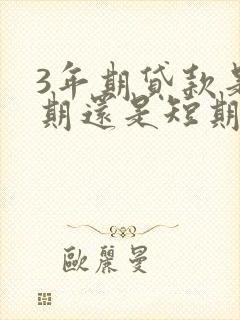 3年期貸款是
期還是短期
歐麗曼